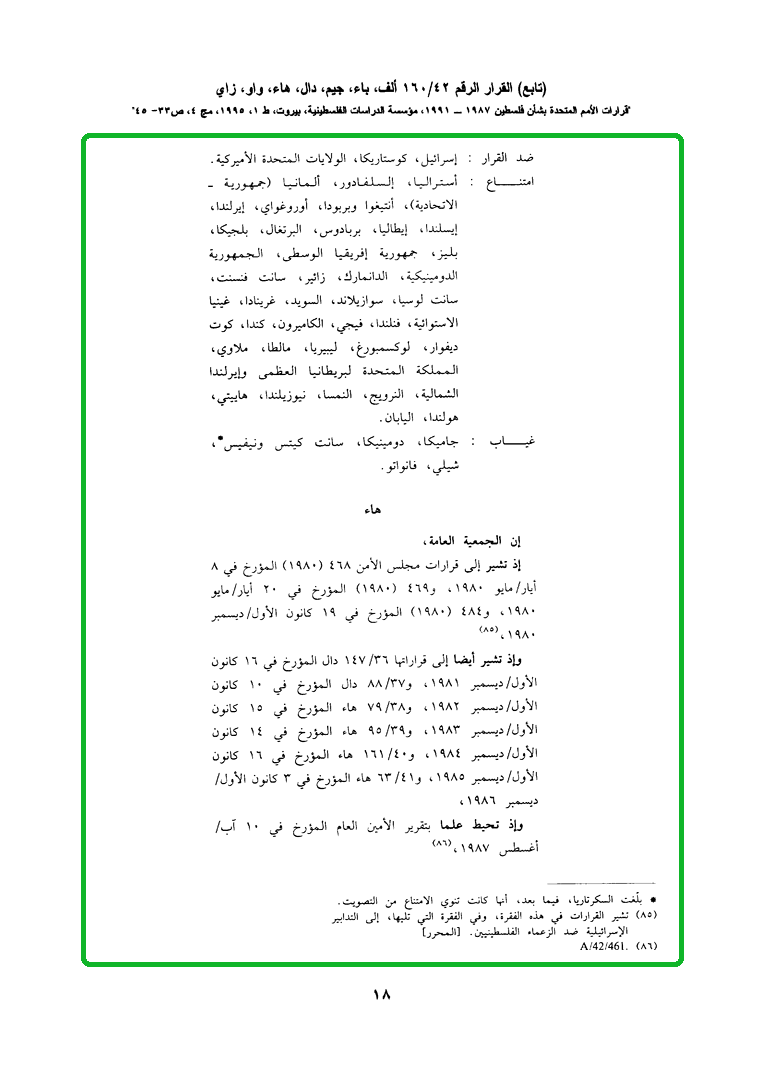 (تابع) القرار الرقم ١٦٠/٤٢ ألف، باء، جيم، دال، هاء، واو، زاي
"قرارات الأمم المتحدة بشأن فلسطين ١٩٨٧ ــ ١٩٩١، مؤسسة الدراسات الفلسطينية، بيروت، ط ١، ١٩٩٥، مج ٤، ص٣٣- ٤٥"
ضد القرار : إسرائيل، كوستاريكا، الولايات المتحدة الأميركية.
امتنــــاع : أستراليا، إلسلفادور، ألمانيا (جمهورية ــ
الاتحادية)، أنتيغوا وبربودا، أوروغواي، إيرلندا،
إيسلندا، إيطاليا، بربادوس، البرتغال، بلجيكا،
بليز، جمهورية إفريقيا الوسطى، الجمهورية
الدومينيكية، الدانمارك، زائير، سانت فنسنت،
سانت لوسيا، سوازيلاند، السويد، غرينادا، غينيا
الاستوائية، فنلندا، فيجي، الكاميرون، كندا، كوت
ديفوار، لوكسمبورغ، ليبيريا، مالطا، ملاوي،
المملكة المتحدة لبريطانيا العظمى وإيرلندا
الشمالية، النرويج، النمسا، نيوزيلندا، هاييتي،
هولندا، اليابان.
غيــــاب : جاميكا، دومينيكا، سانت كيتس ونيفيس*،
شيلي، فانواتو.
هاء
إن الجمعية العامة،
إذ تشير إلى قرارات مجلس الأمن ٤٦٨ (١٩٨٠) المؤرخ في ٨
أيار/مايو ١٩٨٠، و٤٦٩ (١٩٨٠) المؤرخ في ٢٠ أيار/مايو
١٩٨٠، و٤٨٤ (١٩٨٠) المؤرخ في ١٩ كانون الأول/ديسمبر
١٩٨٠،(٨٥)
وإذ تشير أيضا إلى قراراتها ١٤٧/٣٦ دال المؤرخ في ١٦ كانون
الأول/ديسمبر ١٩٨١، و٨٨/٣٧ دال المؤرخ في ١٠ كانون
الأول/ديسمبر ١٩٨٢، و٧٩/٣٨ هاء المؤرخ في ١٥ كانون
الأول/ديسمبر ١٩٨٣، و٩٥/٣٩ هاء المؤرخ في ١٤ كانون
الأول/ديسمبر ١٩٨٤، و١٦١/٤٠ هاء المؤرخ في ١٦ كانون
الأول/ديسمبر ١٩٨٥، و٦٣/٤١ هاء المؤرخ في ٣ كانون الأول/
ديسمبر ١٩٨٦،
وإذ تحيط علما بتقرير الأمين العام المؤرخ في ١٠ آب/
أغسطس ١٩٨٧،(٨٦)
* بلّغت السكرتاريا، فيما بعد، أنها كانت تنوي الامتناع عن التصويت.
(٨٥) تشير القرارات في هذه الفقرة، وفي الفقرة التي تليها، إلى التدابير
الإسرائيلية ضد الزعماء الفلسطينيين. [المحرر]
(٨٦) A/42/461.
١٨